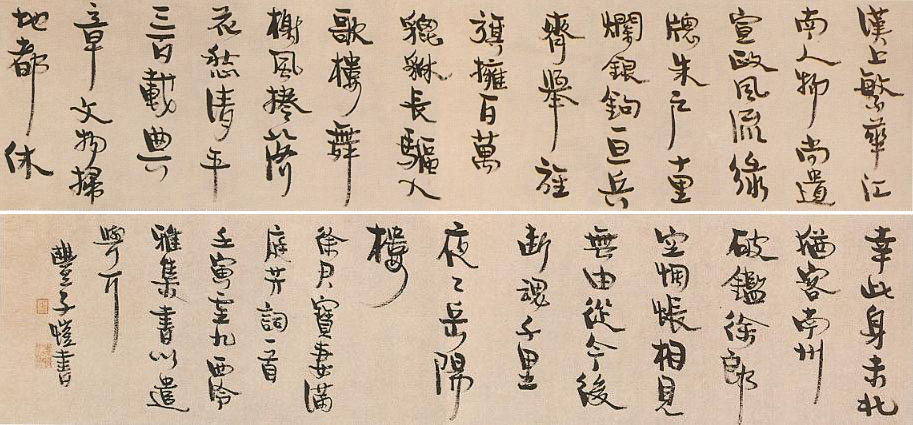 漢上繁華江
南人物尚遺
宣政風流綠
牕朱戶十里
爛銀鉤一旦兵
齊舉旌
旗擁百萬
貔貅長驅入
歌樓舞
榭風捲落
花愁清平
三百載典
章文物掃
地都休
幸此身未北
猶客南州
破鑑徐郎
空惆悵相見
無由從今後
斷魂千里
夜々岳陽
樓
徐君寶妻滿
庭芳詞一首
壬寅重九西泠
雅集書以遣
興耳
豐子愷書